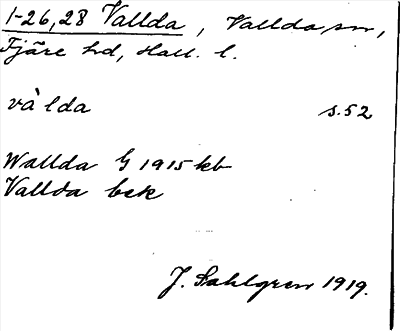 1-26,28 Vallda, Vallda sn,
Fjäre hd, Hall. l.
vàlda s.52
Wallda G 1915 kb
Vallda bek
J. Sahlgren 1919.